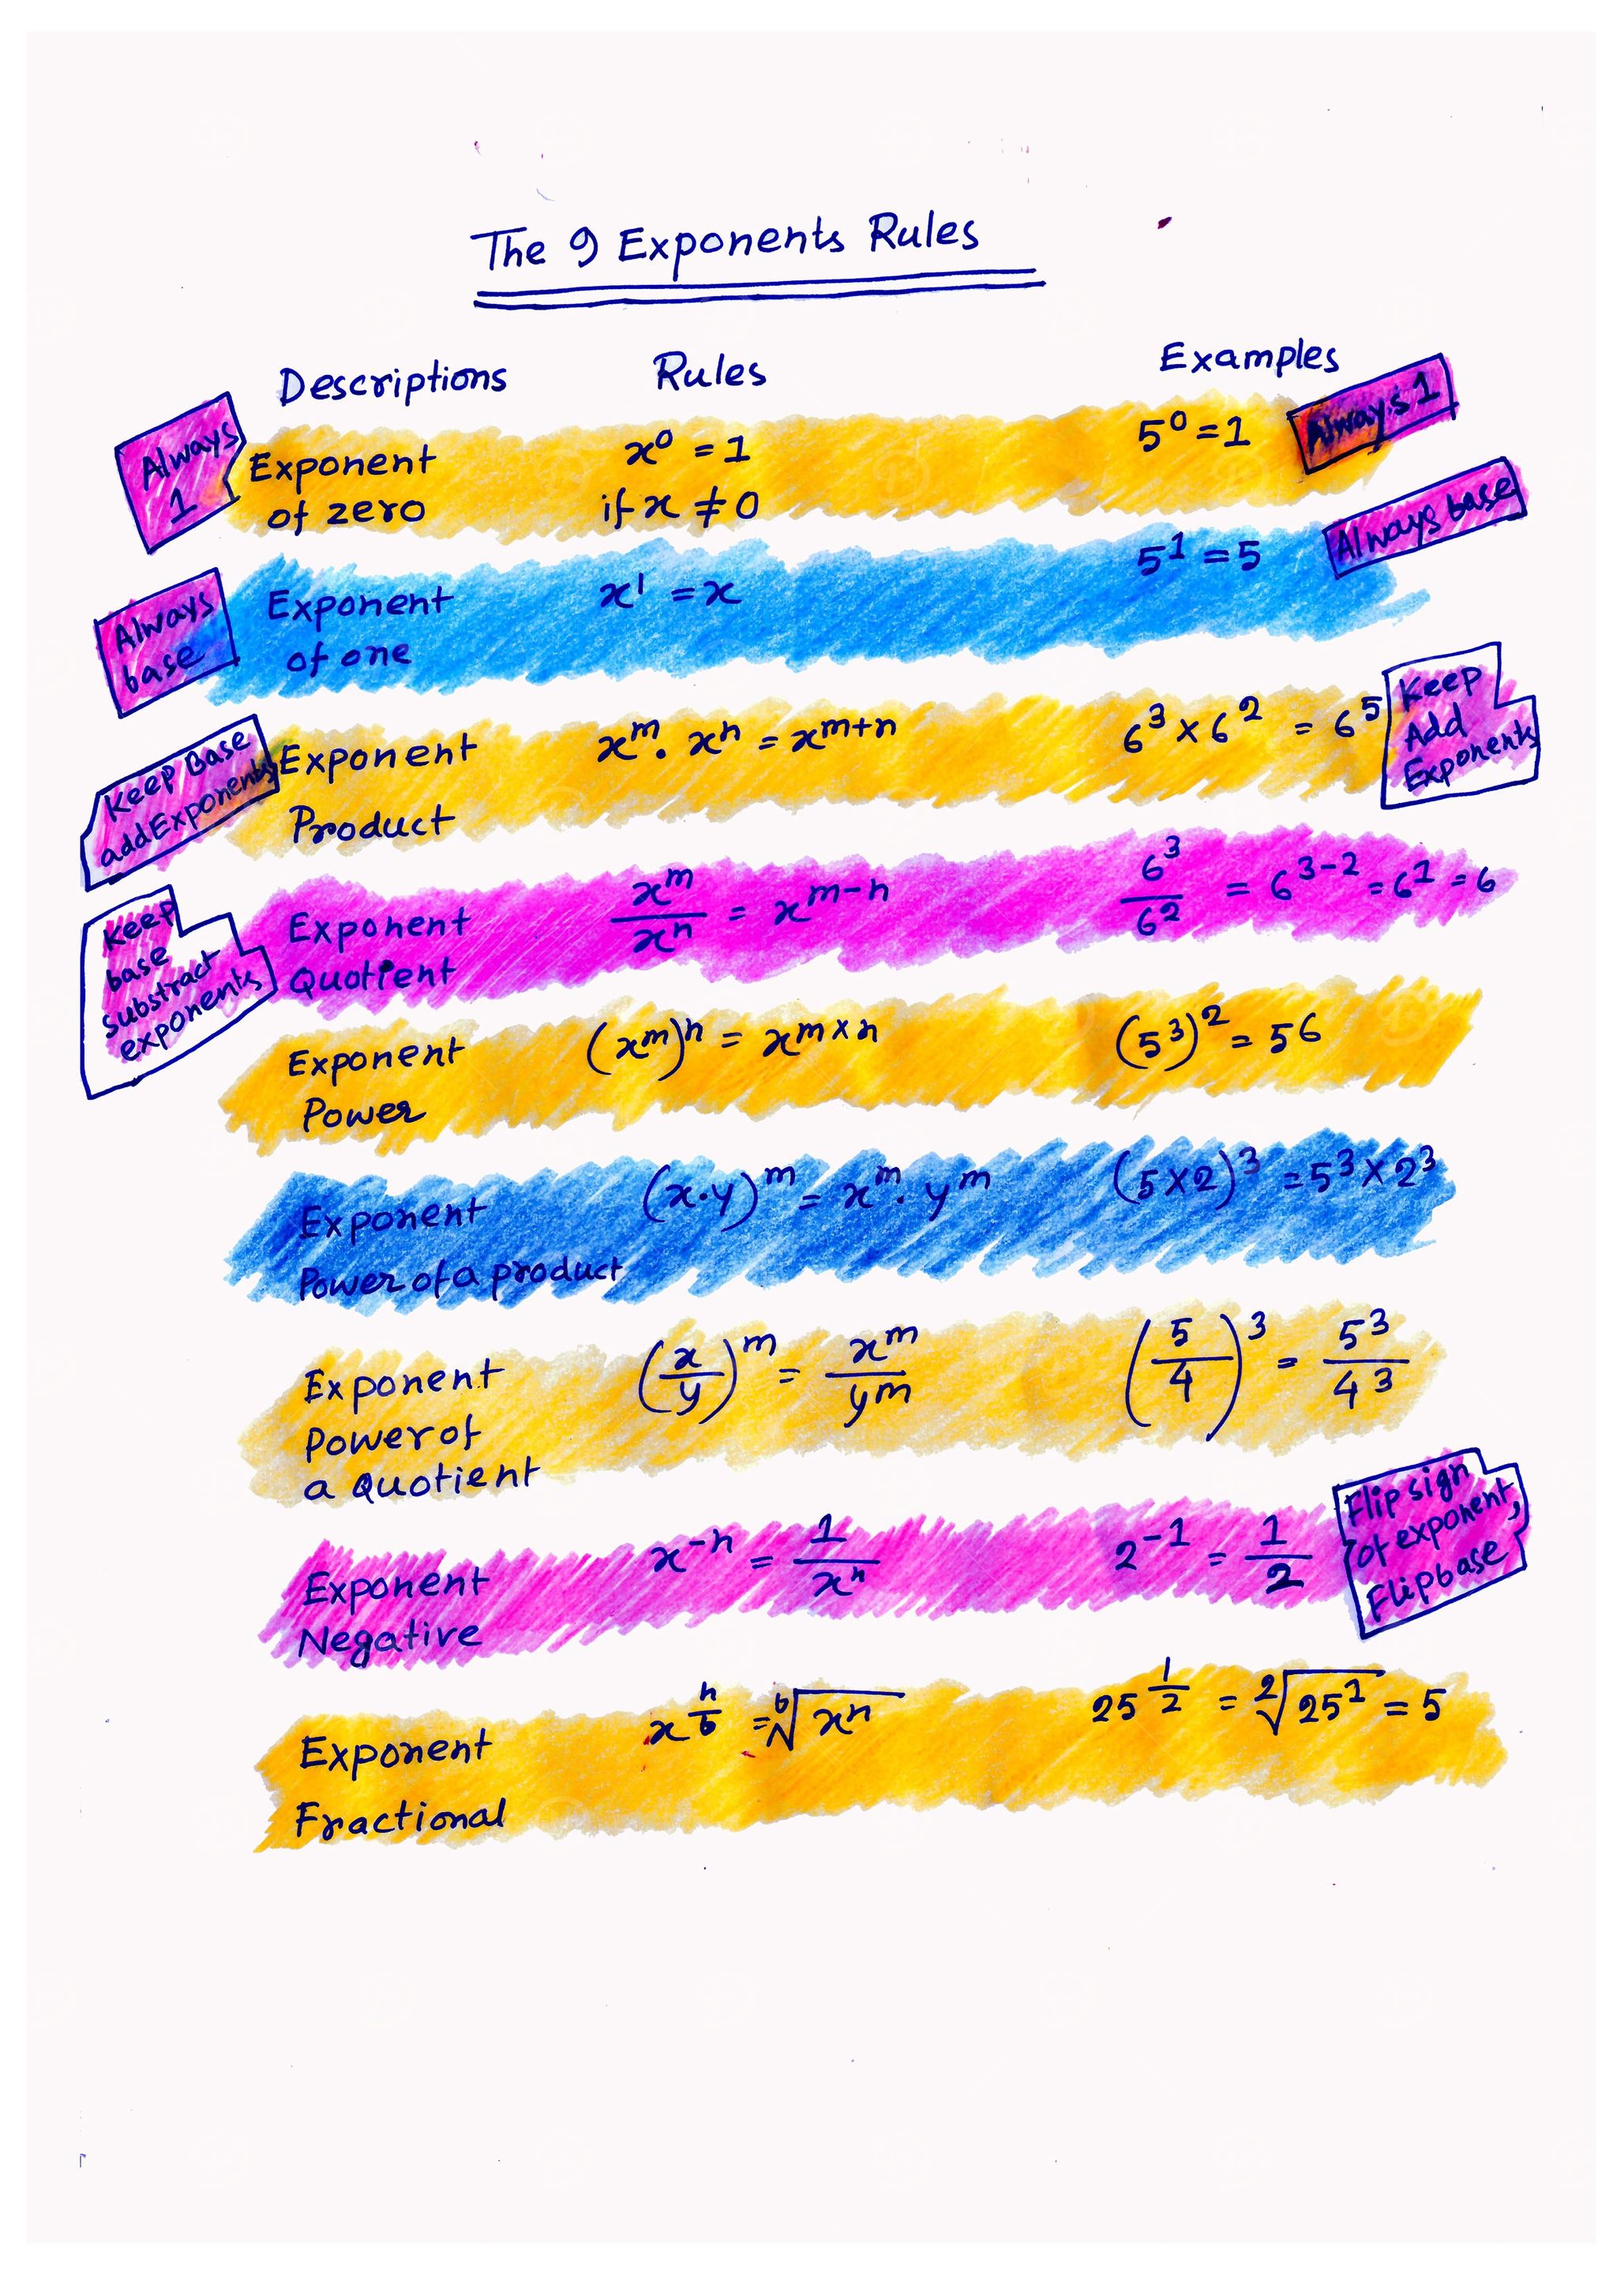 The 9 Exponents Rules
Descriptions Rules Examples
Always
1
Exponent
of zero
x⁰ = 1
if x ≠ 0
5⁰ = 1
Always 1
Always
base
Exponent
of one
x¹ = x
5¹ = 5
Always base
Keep Base
add Exponents
Exponent
Product
xᵐ · xⁿ = xᵐ⁺ⁿ
6³ × 6² = 6⁵
Keep
Add
Exponents
Keep
base
substract
exponents
Exponent
Quotient
xᵐ/xⁿ = xᵐ⁻ⁿ
6³/6² = 6³⁻² = 6¹ = 6
Exponent
Power
(xᵐ)ⁿ = x^(m×n)
(5³)² = 5⁶
Exponent
Power of a product
(x·y)ᵐ = xᵐ · yᵐ
(5×2)³ = 5³ × 2³
Exponent
Power of
a Quotient
(x/y)ᵐ = xᵐ/yᵐ
(5/4)³ = 5³/4³
Exponent
Negative
x⁻ⁿ = 1/xⁿ
2⁻¹ = 1/2
Flip sign
of exponent,
Flip base
Exponent
Fractional
x^(n/b) = ᵇ√xⁿ
25^(1/2) = ²√25¹ = 5